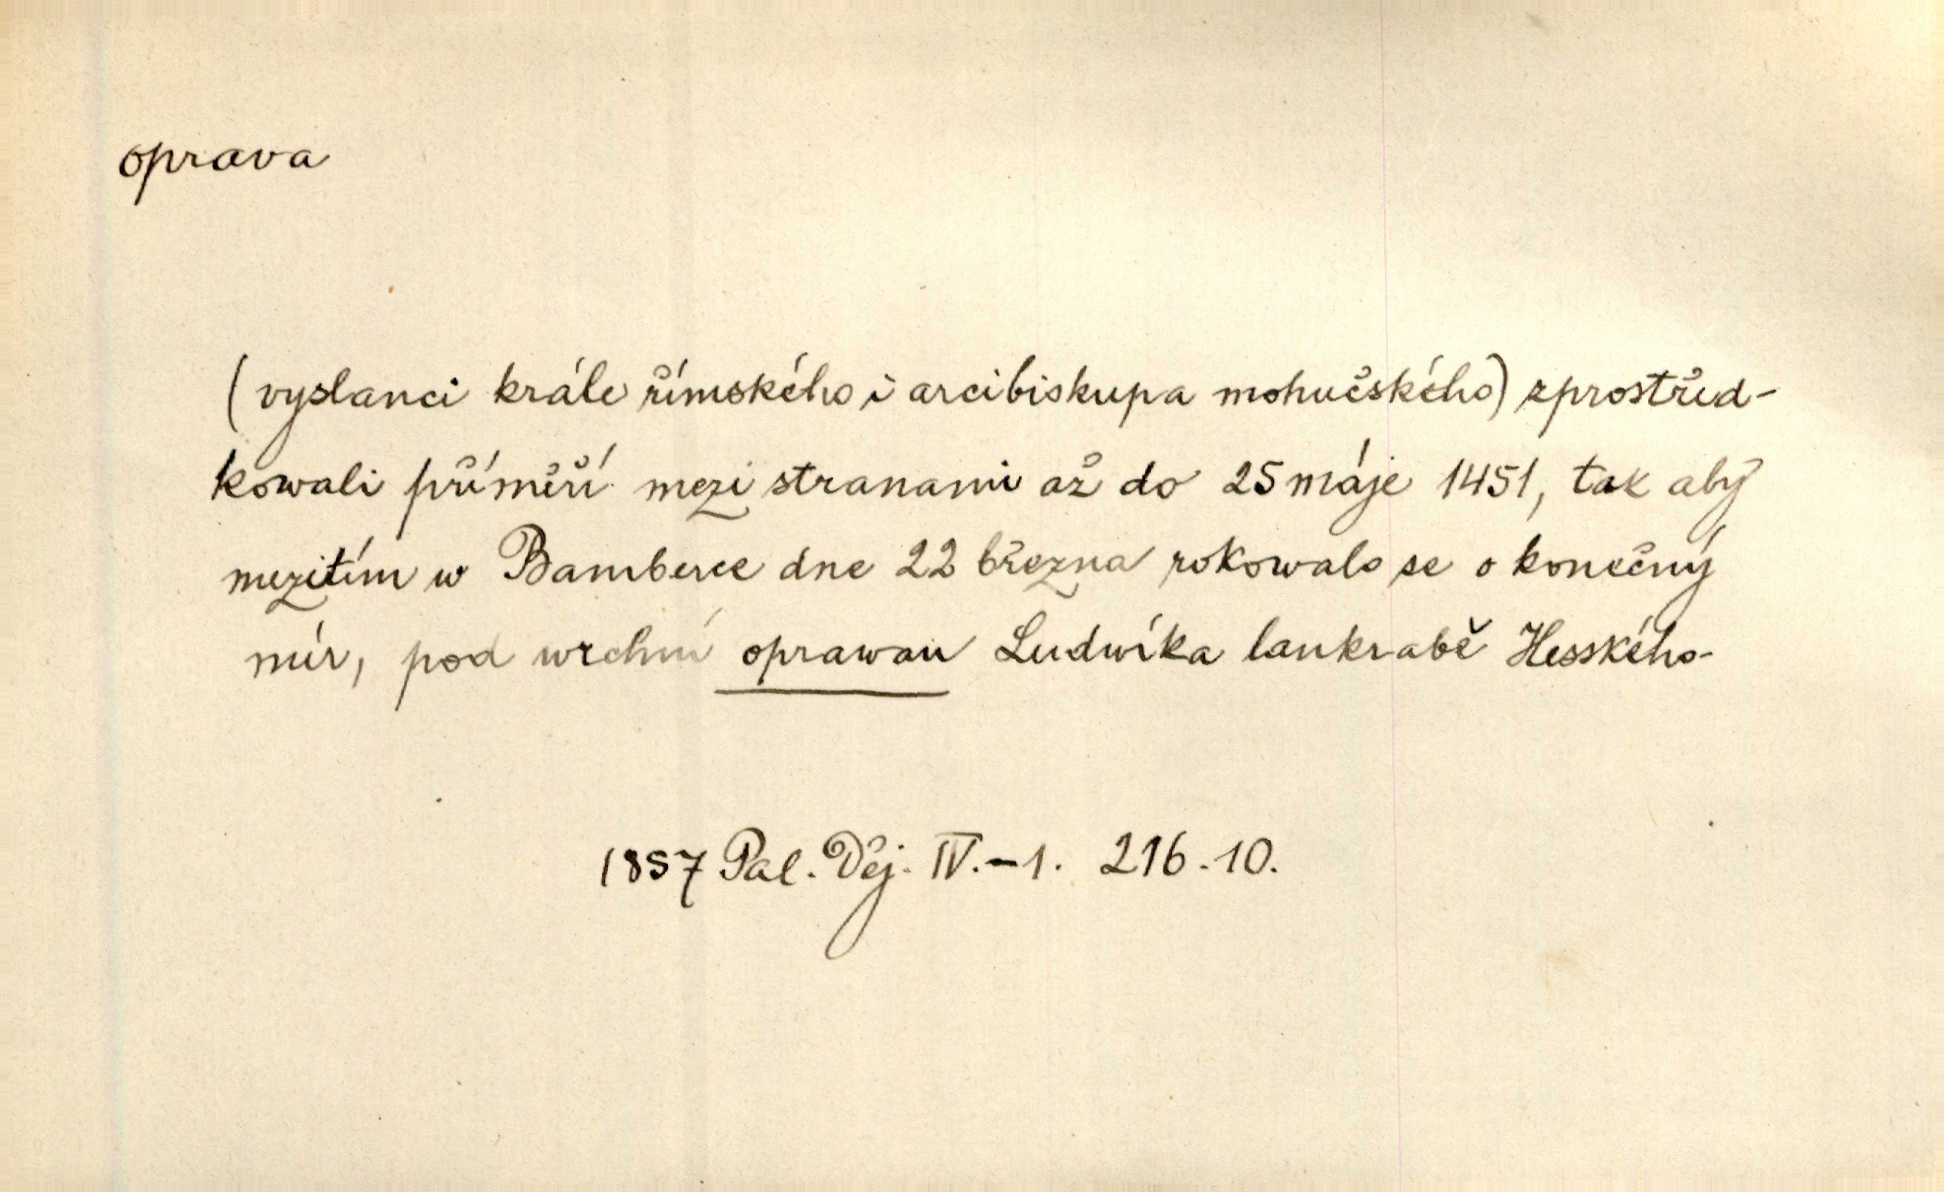 oprava
(vyslanci krále římského i arcibiskupa mohučského) zprostřed-
kowali příměří mezi stranami až do 25 máje 1451, tak aby
mezitím w Bamberce dne 22 března rokowalo se o konečný
mír, pod wrchní oprawau Ludwíka lankrabě Hesského.
1857 Pal. Děj. IV.-1. 216.10.